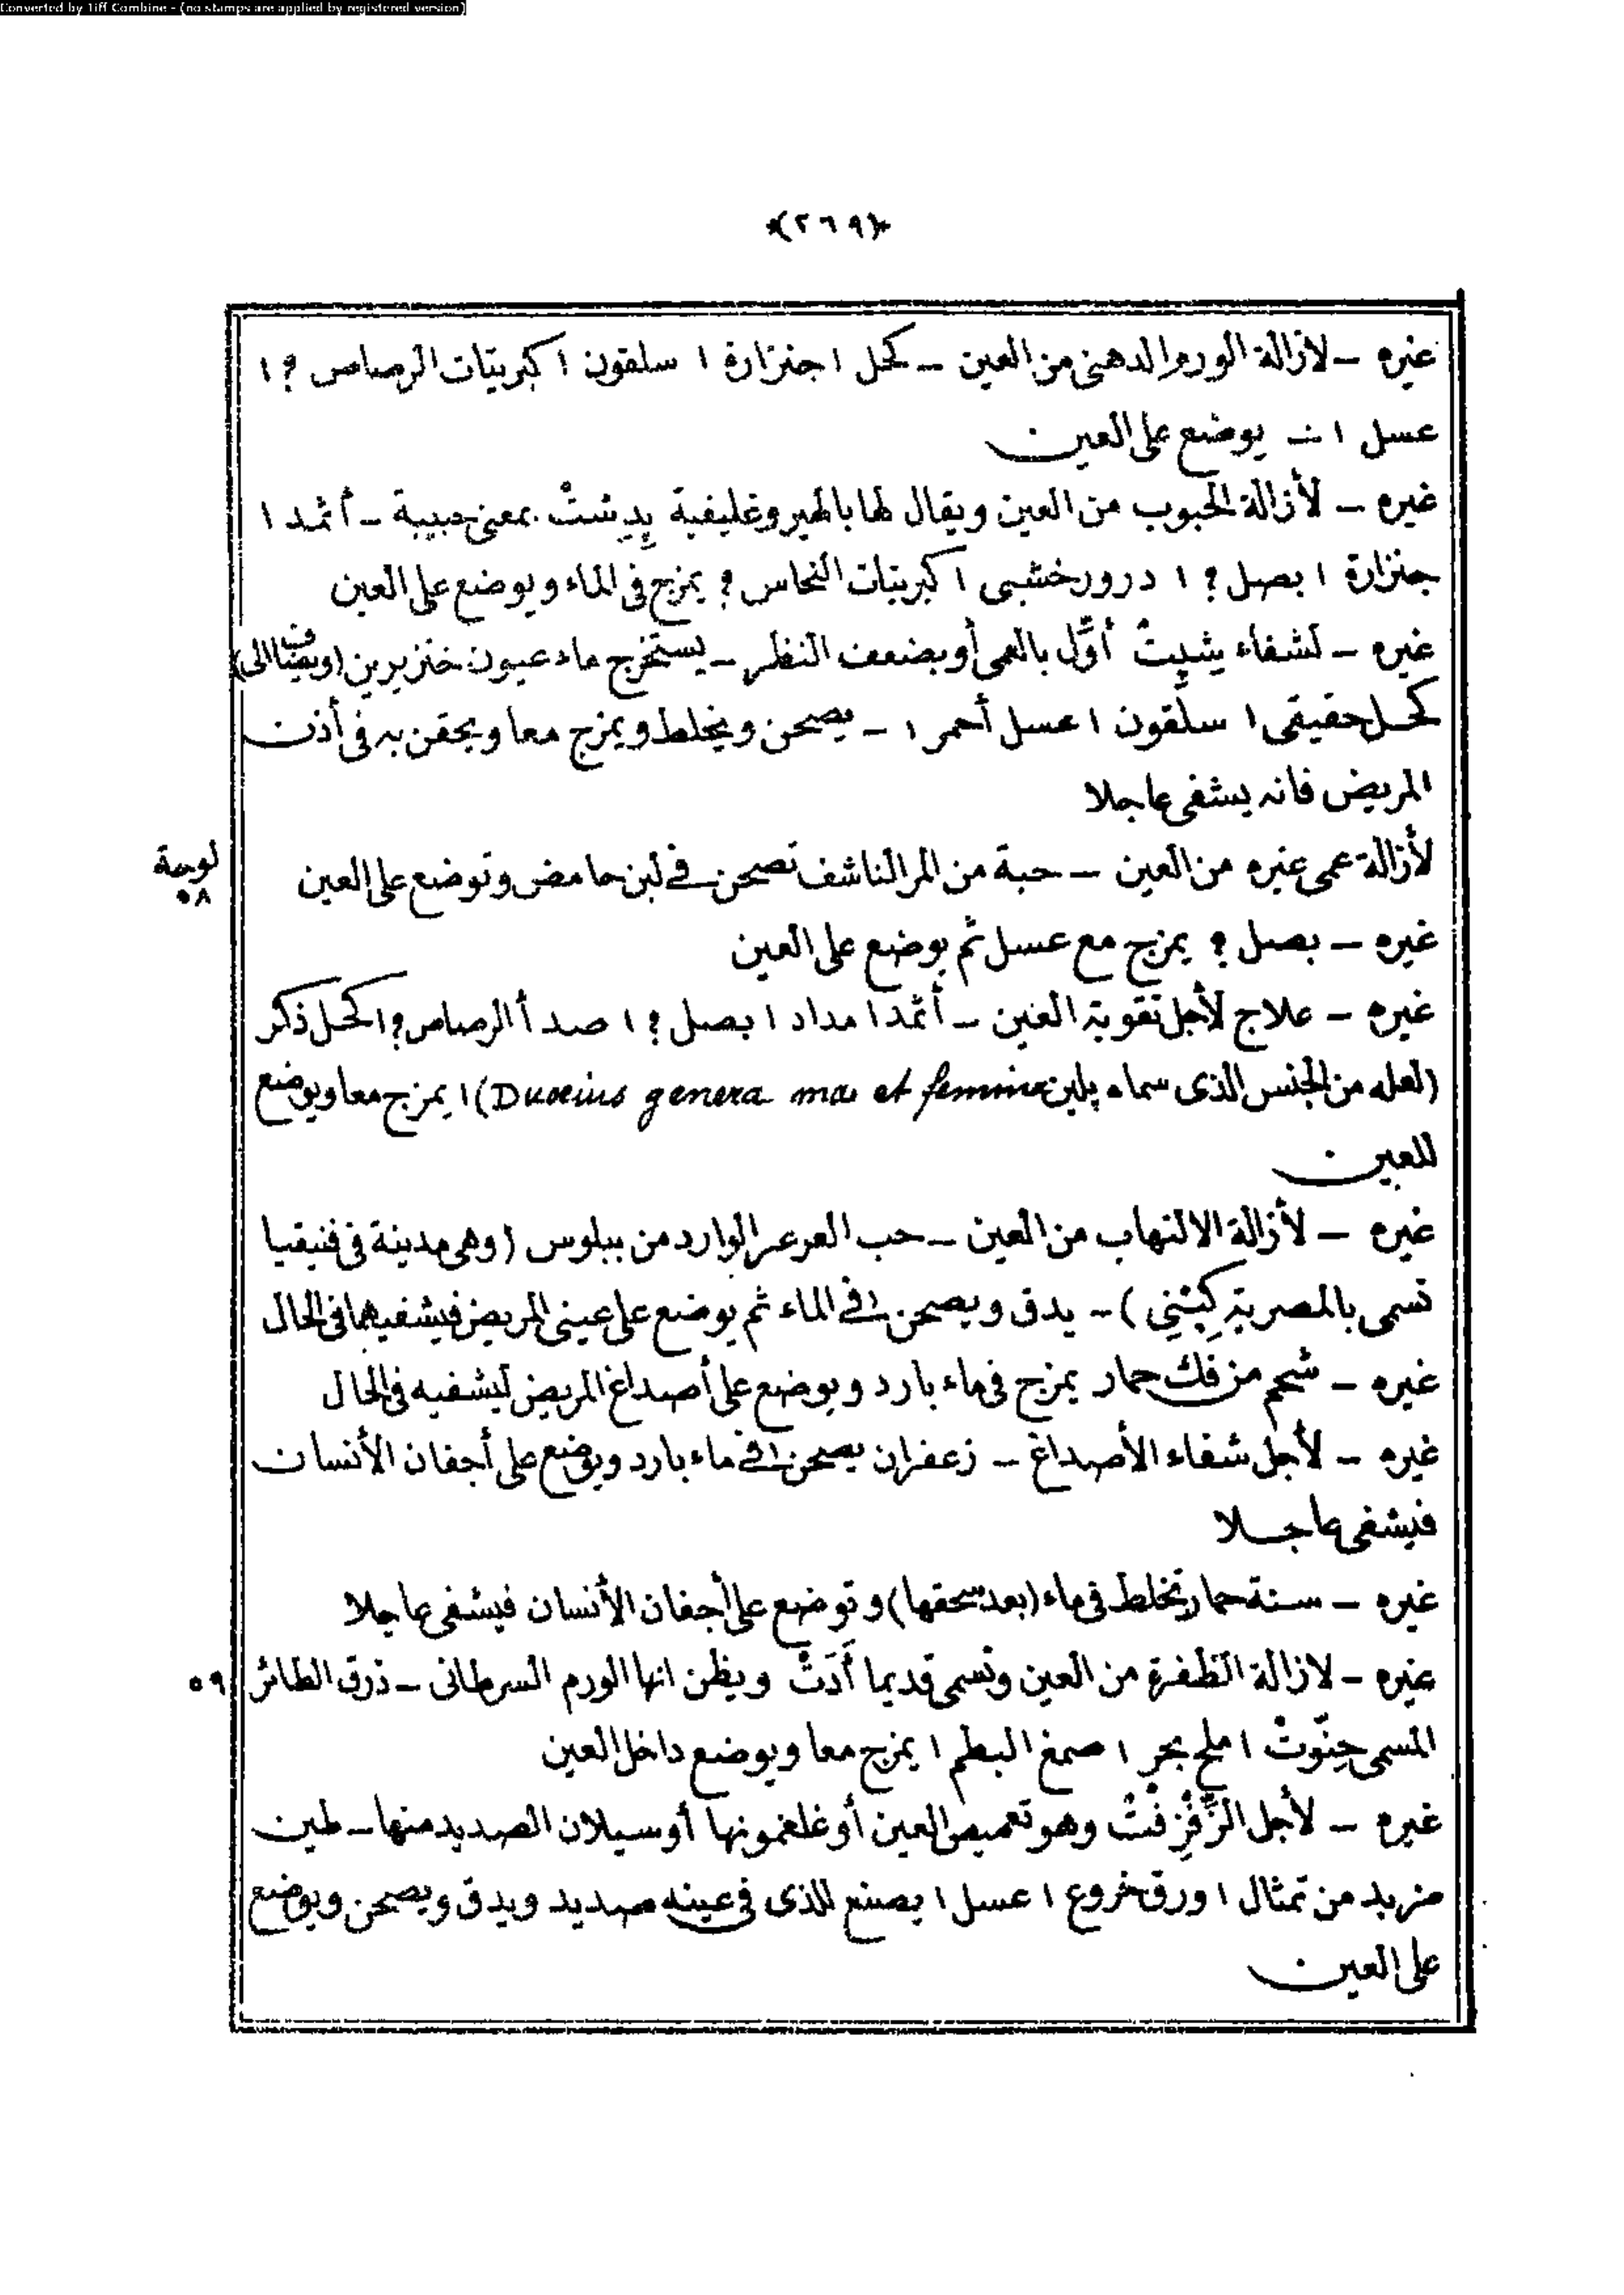 Converted by Tiff Combine - (no stamps are applied by registered version)
﴿٢٦٩﴾
غيره – لأزالة الورم الدهنى من العين – كحل ١ جنزارة ١ سلقون ١ كبريتات الرصاص ? ١
عسل ١ – يوضع على العين
غيره – لأزالة الحبوب من العين ويقال لها بالهيروغليفية پِدِشتْ بمعنى حبيبة – أثمد ١
جنزارة ١ بصل ? ١ درور خشبى ١ كبريتات النحاس ? يمزج فى الماء ويوضع على العين
غيره – لشفاء أوّل بالعمى أو بضعف النظر – يستخرج ماء عيون خنزيرين (ويضاف الى)
كحل حقيقى ١ سلقون ١ عسل أحمر ١ – يصحن ويخلط ويمزج معا ويحقن به فى أذن
المريض فانه يشفى عاجلا
لوحة ٥٨
لأزالة عمى غيره من العين – حبة من المر الناشف تصحن فى لبن حامض وتوضع على العين
غيره – بصل ? يمزج مع عسل ثم يوضع على العين
غيره – علاج لأجل تقوية العين – أثمد ١ مداد ١ بصل ? ١ صدأ الرصاص ? ١ كحل ذكر
(لعله من الجنس الذى سماه پلين Duoeius genera mas et femina) ١ يمزج معا ويوضع
للعين
غيره – لأزالة الالتهاب من العين – حب العرعر الوارد من ببلوس (وهى مدينة فى فنيقيا
تسمى بالمصرية كِبْتِنِي) – يدق ويصحن فى الماء ثم يوضع على عينى المريض فيشفيهما فى الحال
غيره – شحم من فك حمار يمزج فى ماء بارد ويوضع على أصداغ المريض ليشفيه فى الحال
غيره – لأجل شفاء الأصداغ – زعفران يصحن فى ماء بارد ويوضع على أجفان الأنسان
فيشفى عاجلا
غيره – سنة حمار تخلط فى ماء (بعد سحقها) وتوضع على أجفان الأنسان فيشفى عاجلا
غيره – لازالة الظفرة من العين وتسمى قديما أَدَتْ ويظن انها الورم السرطانى – ذرق الطائر
٥٩
المسمى حِنّوتْ ١ ملح بحر ١ صمغ البطم ١ يمزج معا ويوضع داخل العين
غيره – لأجل وهو تعميص العين أو غلغمونها أو سيلان الصديد منها – طين
مزيد من تمثال ١ ورق خروع ١ عسل ١ يصنع للذى فى عينه صديد ويدق ويصحن ويوضع
على العين